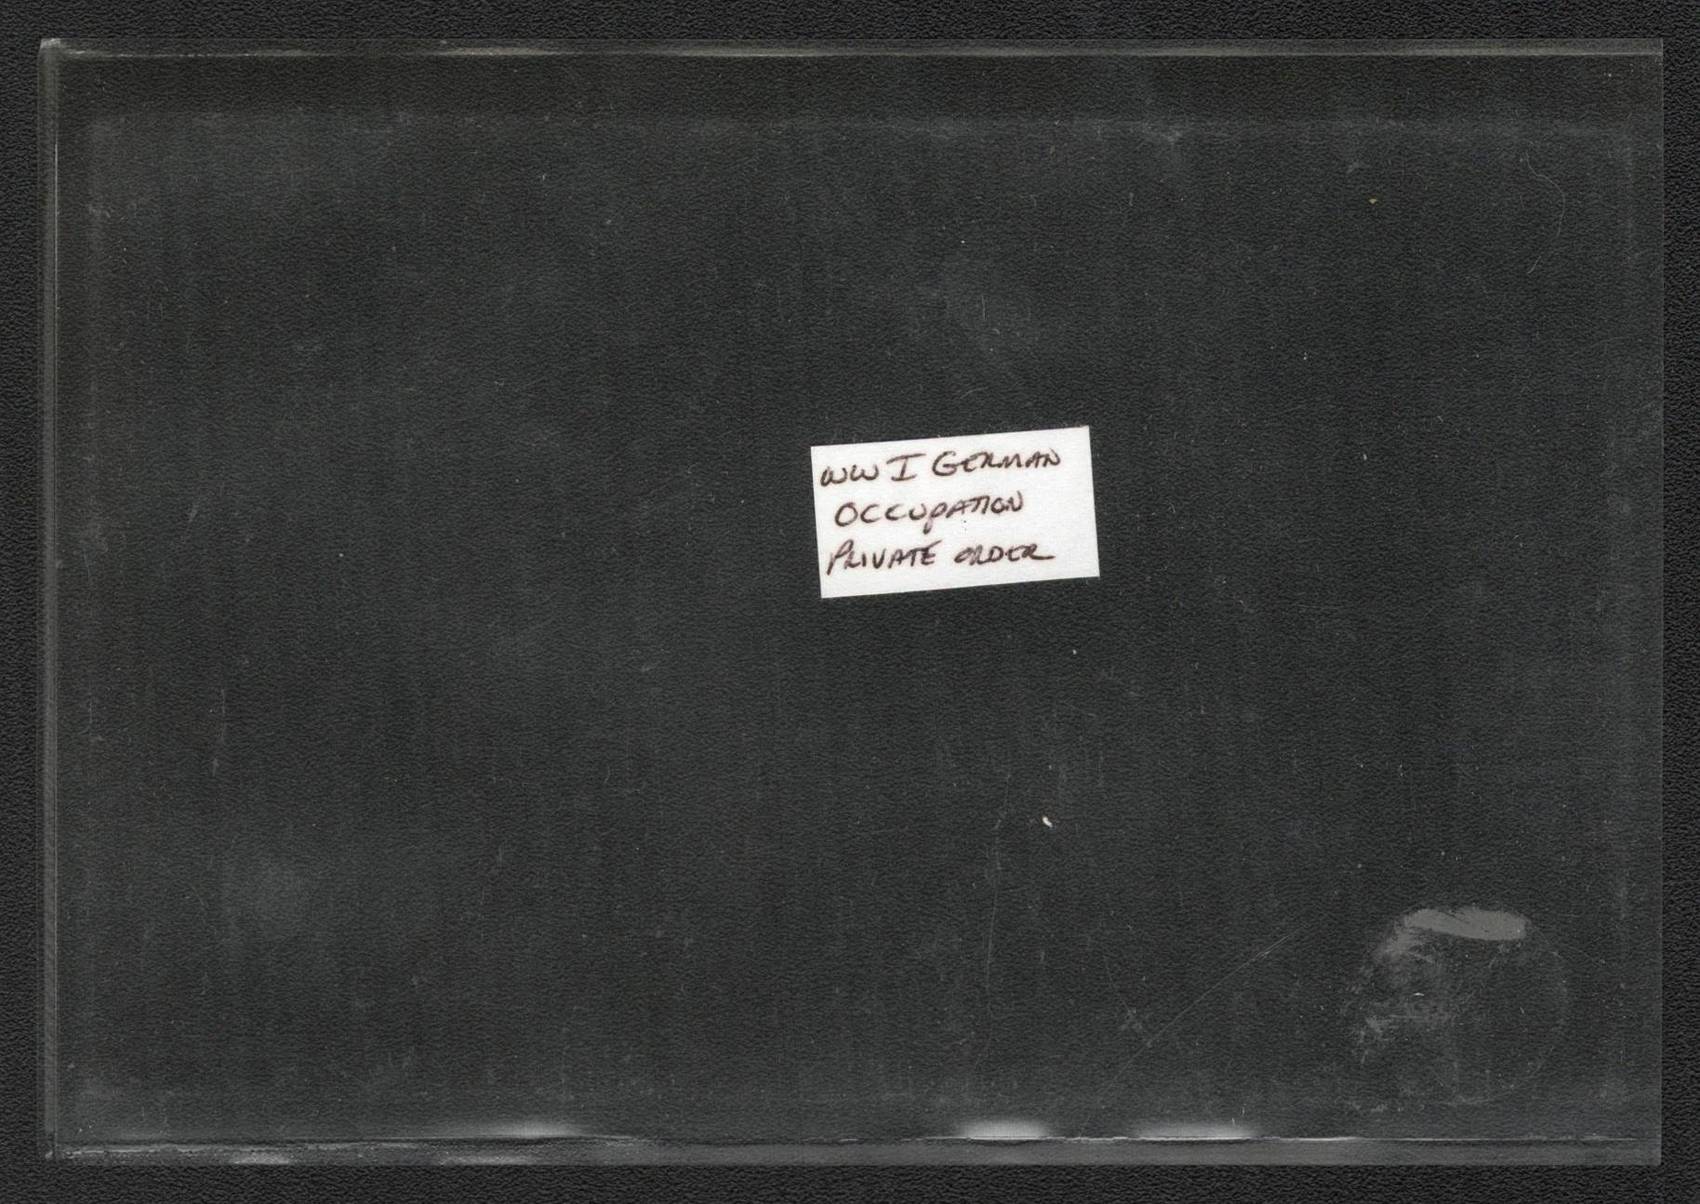 WW I GERMAN
OCCUPATION
PRIVATE ORDER